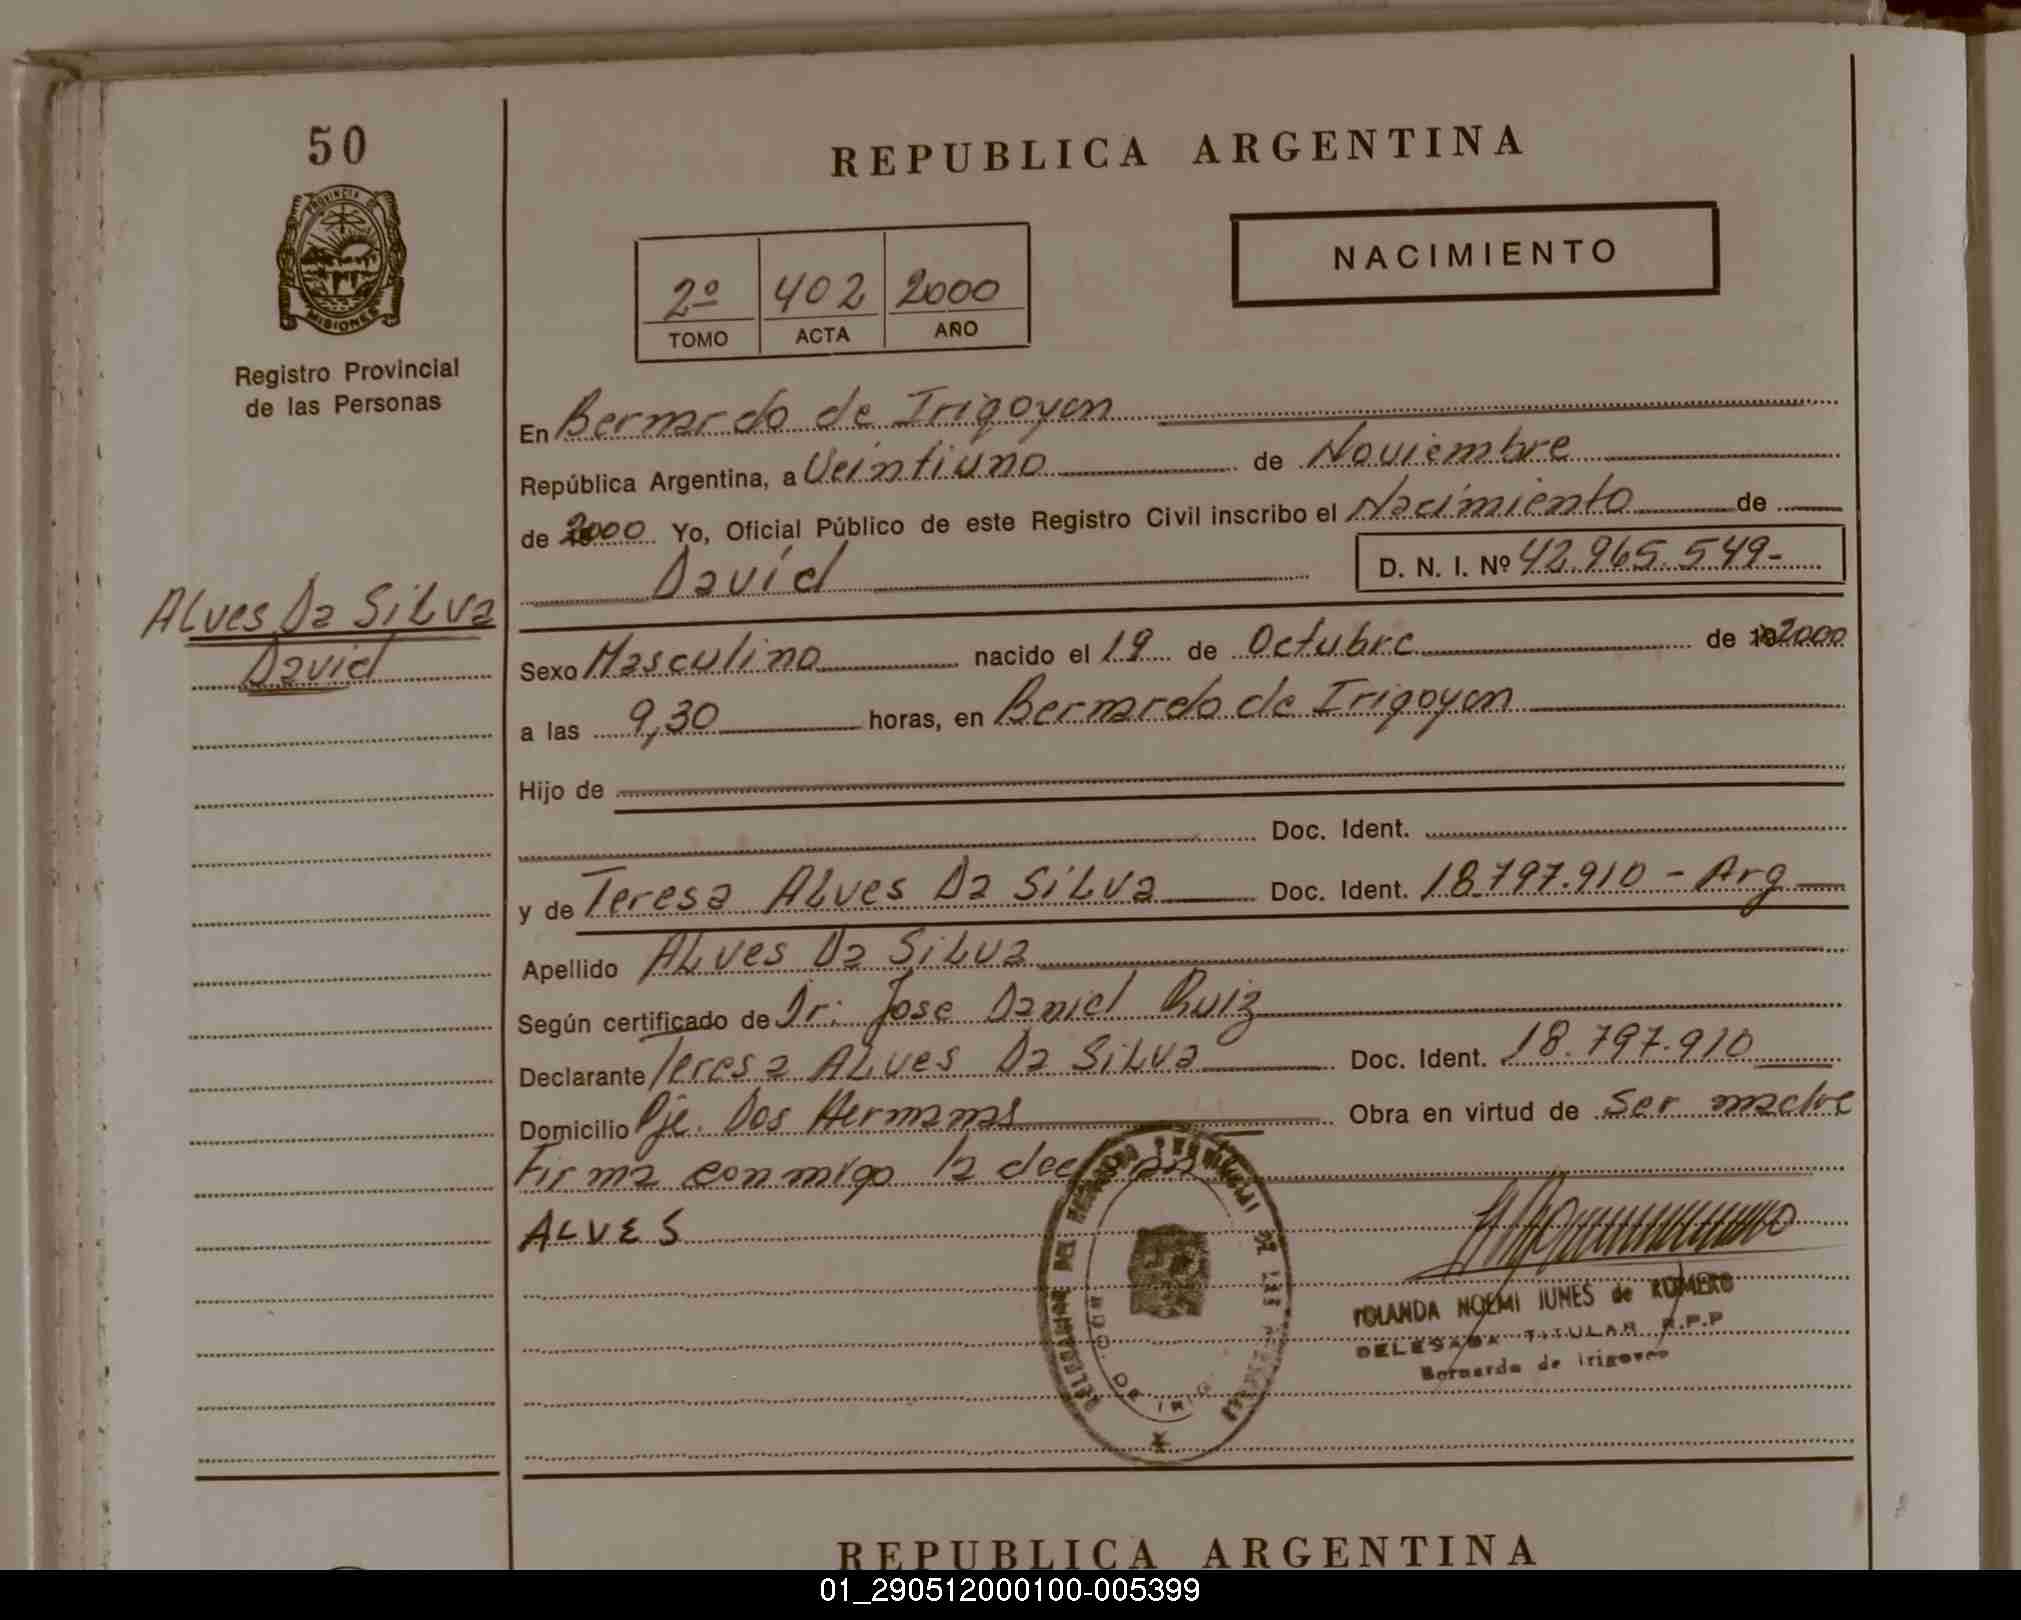 50
PROVINCIA DE
MISIONES
Registro Provincial
de las Personas
ALves Da SiLva
David
REPUBLICA ARGENTINA
NACIMIENTO
2º 402 2000
TOMO ACTA AÑO
En Bernardo de Irigoyen
República Argentina, a Veintiuno de Noviembre
de 2000 Yo, Oficial Público de este Registro Civil inscribo el Nacimiento de
David D. N. I. Nº 42.965.549-
Sexo Masculino nacido el 19 de Octubre de 2000
a las 9,30 horas, en Bernardo de Irigoyen
Hijo de
Doc. Ident.
y de Teresa ALves Da SiLva Doc. Ident. 18.797.910 - Arg
Apellido ALves Da SiLva
Según certificado de Dr: Jose Daniel Ruiz
Declarante Teresa ALves Da SiLva Doc. Ident. 18.797.910
Domicilio Pje. Dos Hermanas Obra en virtud de Ser madre
Firma conmigo la
ALVES
BDO. DE IRIG
YOLANDA NOEMI JUNES de ROMERO
DELEGADA TITULAR R.P.P
Bernardo de Irigoyen
REPUBLICA ARGENTINA
01_290512000100-005399